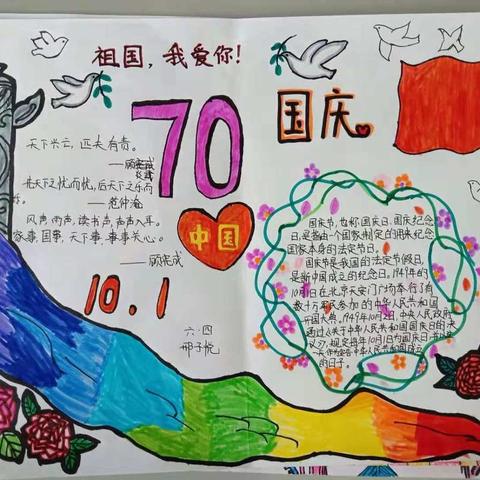 祖国，我爱你！
天下兴亡，匹夫有责。
——顾炎武
先天下之忧而忧，后天下之乐而
乐。
——范仲淹
风声，雨声，读书声，声声入耳。
家事，国事，天下事，事事关心。
——顾宪成
70
中国
10.1
六·四
邢子悦
国庆
国庆节，也称国庆日、国庆纪念
日，是指由个国家制定的用来纪念
国家本身的法定节日。
国庆节是我国的法定节假日，
是新中国成立的纪念日。1949年的
10月1日在北京天安门广场举行了有
数十万军民参加的中华人民共和国
开国大典。1949年10月2日，中央人民政府
通过《关于中华人民共和国国庆日的决
议》，规定每年10月1日为国庆日，
中华人民共和国成立
的日子。